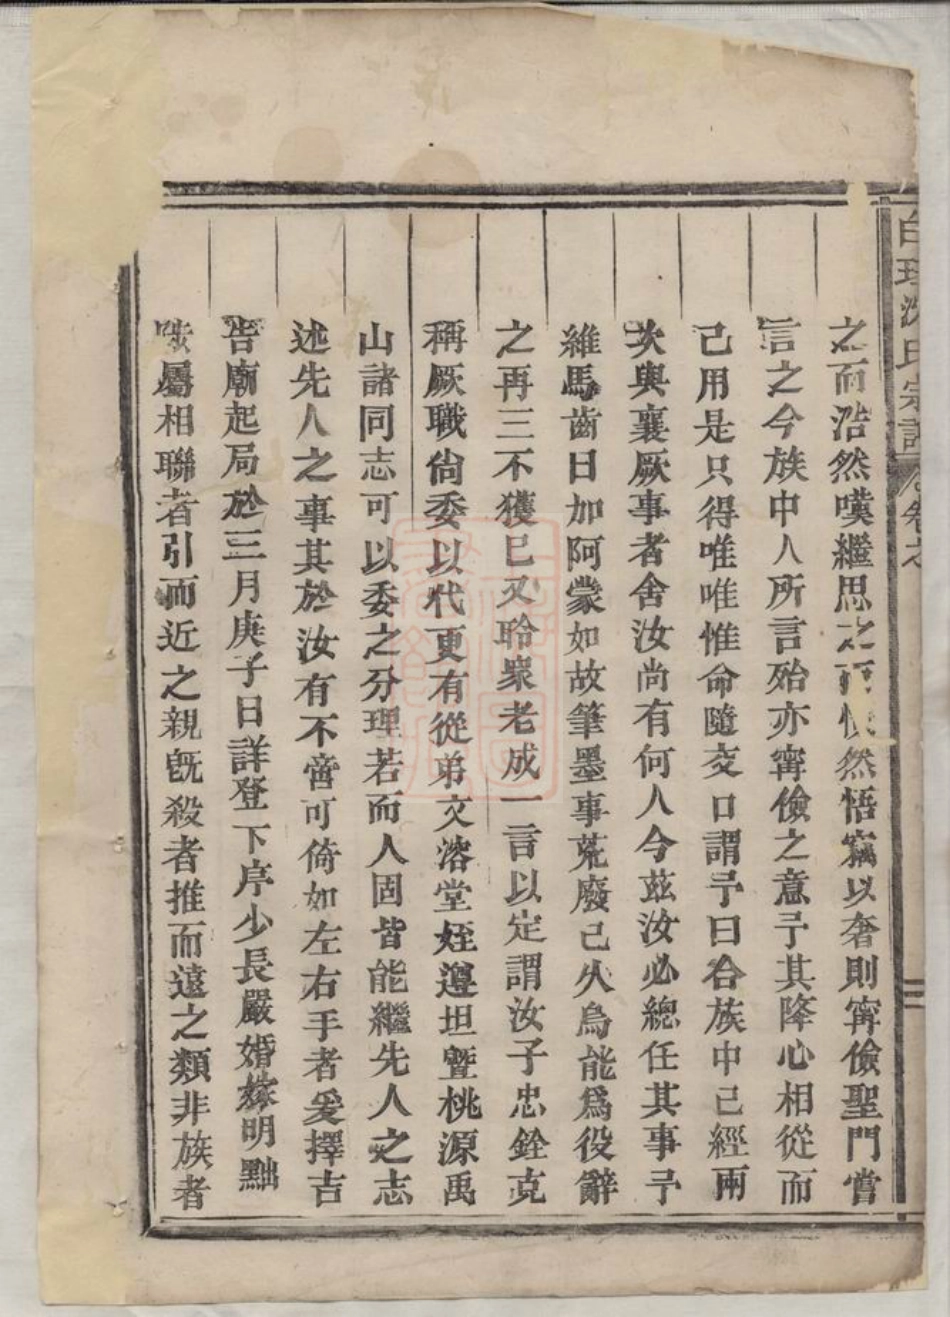 白 沈氏宗譜 卷之
之而浩然嘆繼思之 然悟竊以奢則寗儉聖門嘗
言之今族中人所言殆亦寗儉之意予其降心相從而
己用是只得唯唯惟命隨交口謂予曰合族中已經兩
次與襄厥事者舍汝尚有何人今茲汝必總任其事予
維馬齒日加阿蒙如故筆墨事荒廢已久烏能爲役辭
之再三不獲巳又聆衆老成一言以定謂汝子忠銓克
稱厥職尙委以代更有從弟文溶堂姪遵坦暨桃源禹
山諸同志可以委之分理若而人固皆能繼先人之志
述先人之事其於汝有不啻可倚如左右手者爰擇吉
告廟起局於三月庚子日詳登下序少長嚴婚嫁明黜
陟屬相聯者引而近之親旣殺者推而遠之類非族者